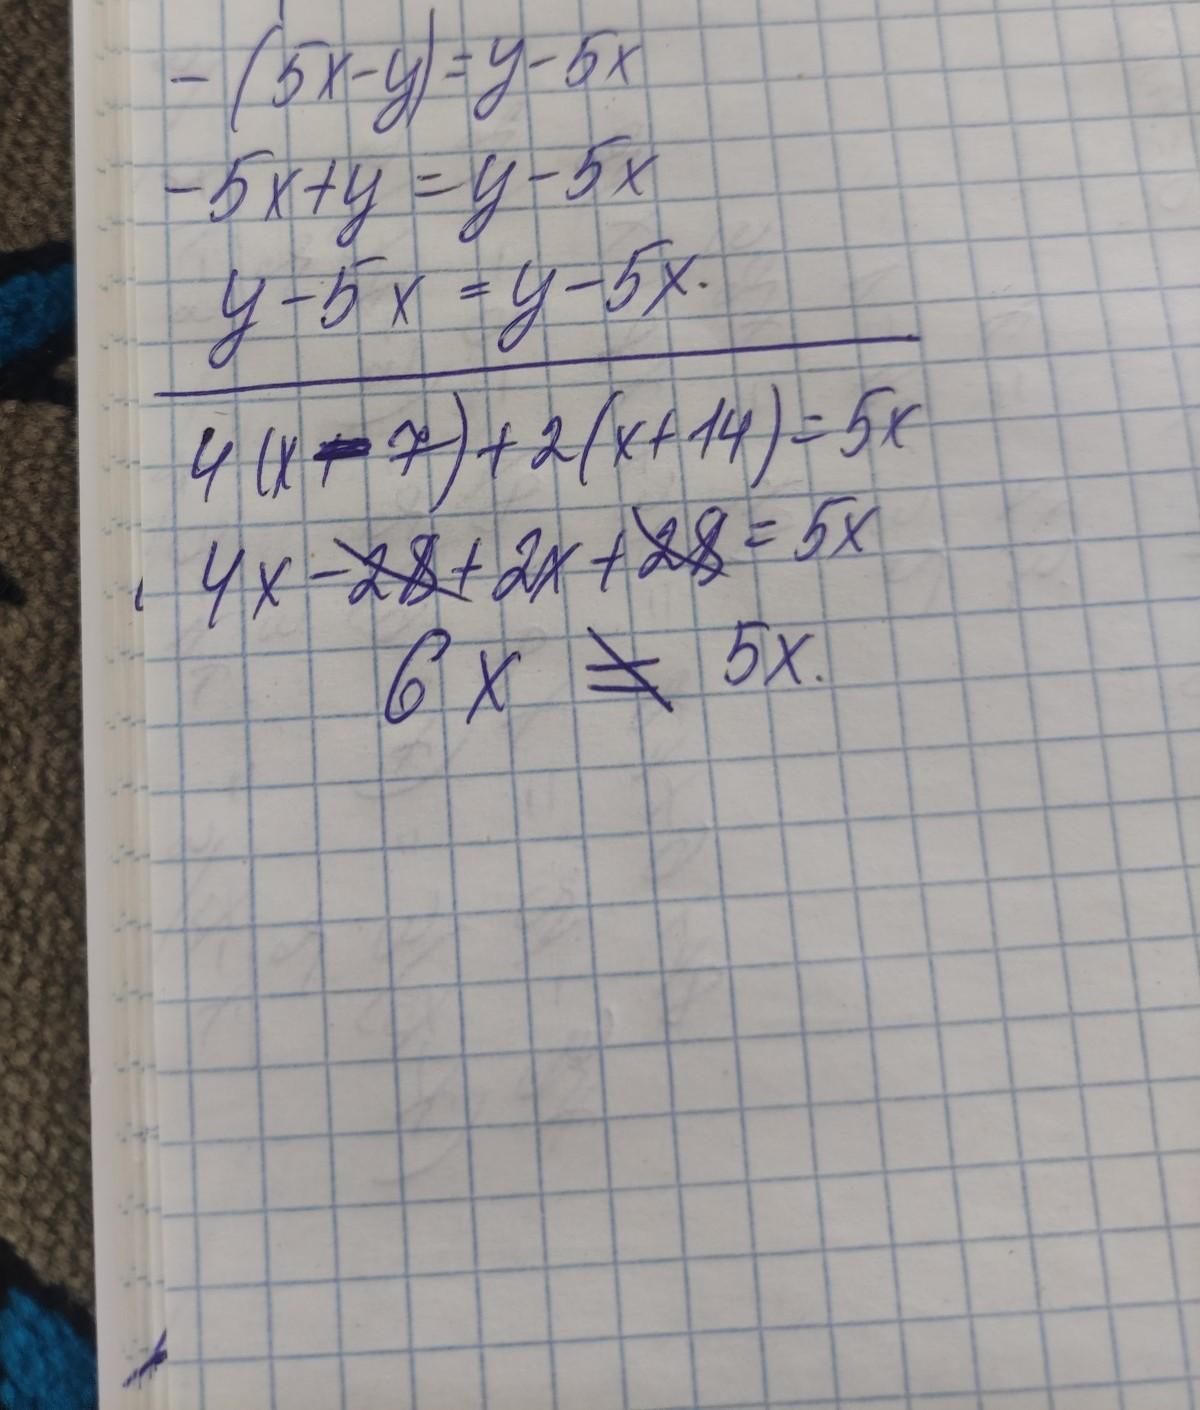 -(5x-y)=y-5x
-5x+y=y-5x
y-5x=y-5x.
4(x-7)+2(x+14)=5x
4x-28+2x+28=5x
6x≠5x.